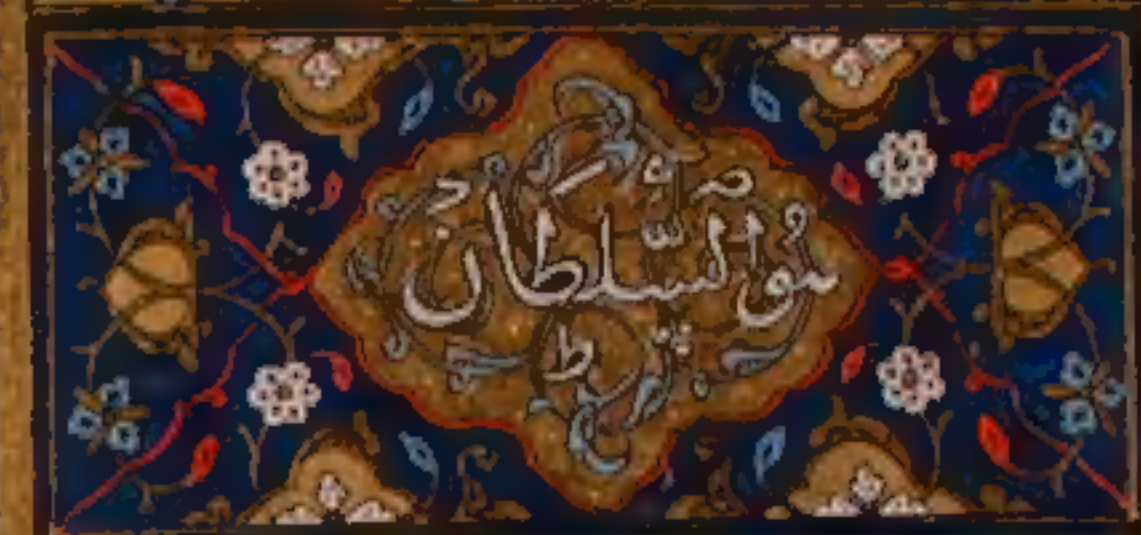 هُوَ السّلطان